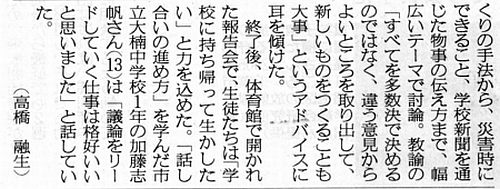 くりの手法から、災害時に
できること、学校新聞を通
じた物事の伝え方まで、幅
広いテーマで討論。教諭の
「すべてを多数決で決める
のではなく、違う意見から
よいところを取り出して、
新しいものをつくることも
大事」というアドバイスに
耳を傾けた。
終了後、体育館で開かれ
た報告会で、生徒たちは「学
校に持ち帰って生かした
い」と力を込めた。「話し
合いの進め方」を学んだ市
立大楠中学校1年の加藤志
帆さん(13)は「議論をリー
ドしていく仕事は格好いい
と思いました」と話してい
た。
(高橋 融生)